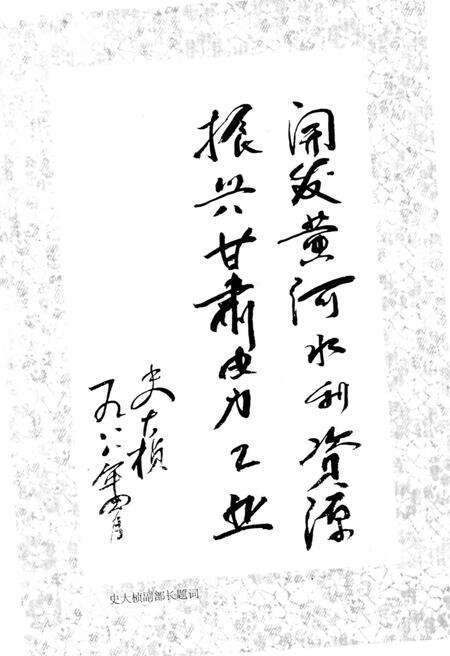 开发黄河水利资源
振兴甘肃电力工业
史大桢
一九八八年四月
史大桢副部长题词